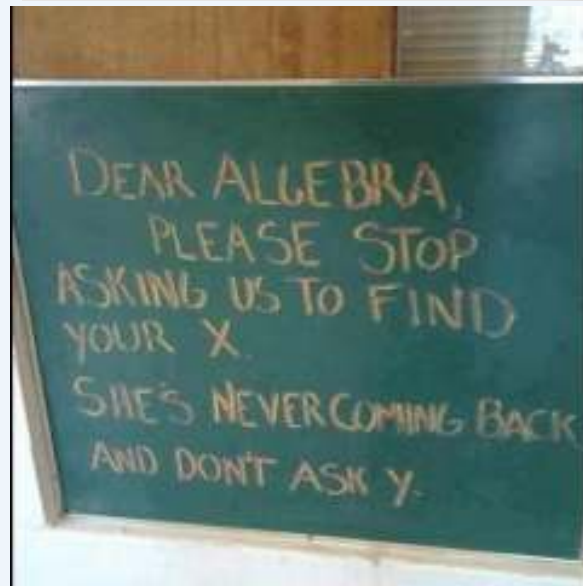 DEAR ALGEBRA,
PLEASE STOP
ASKING US TO FIND
YOUR X.
SHE'S NEVER COMING BACK
AND DON'T ASK Y.